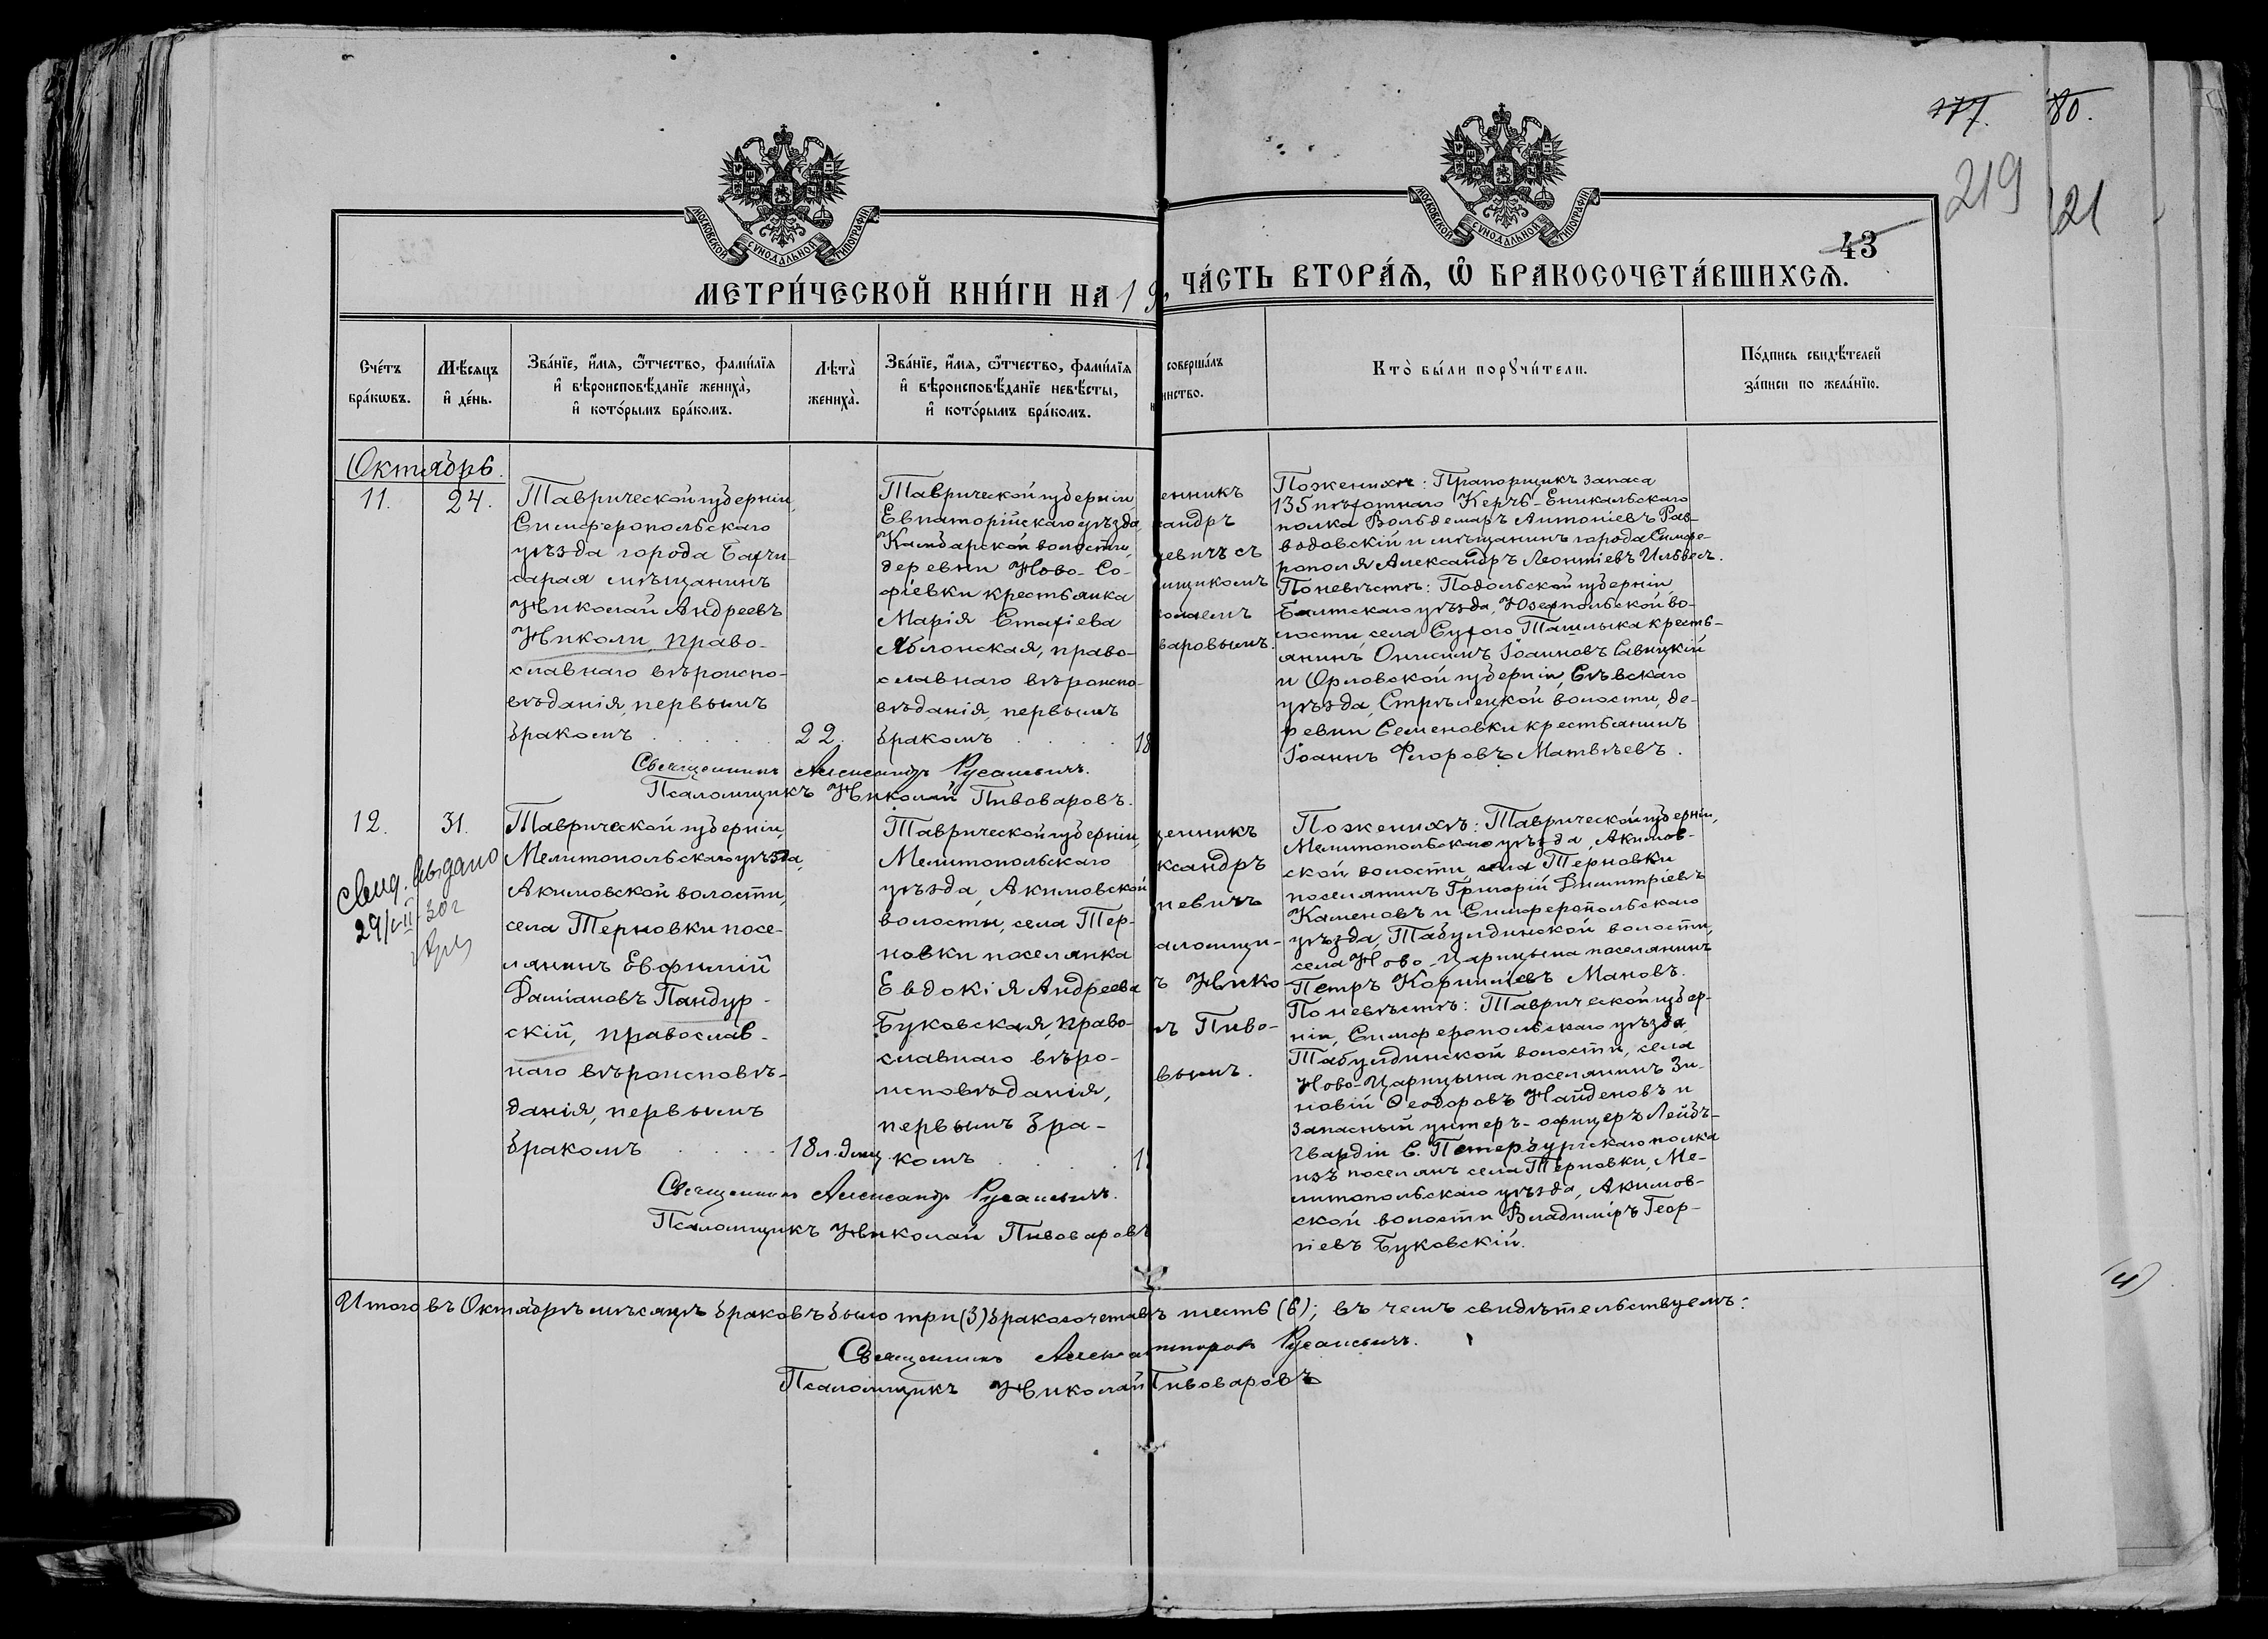 177.
80.
219
121
43
МОСКОВСКОЙ СѴНОДАЛЬНОЙ ТИПОГРАФІИ
МОСКОВСКОЙ СѴНОДАЛЬНОЙ ТИПОГРАФІИ
МЕТРИ́ЧЕСКОЙ КНИ́ГИ НА 19
, ЧА́СТЬ ВТОРА́Ѧ, Ѽ БРАКОСОЧЕТА́ВШИХСѦ.
Сче́тъ
бра́кѡвъ.
Мѣ́сяцъ
и҆ де́нь.
Зва́нїе, и҆́мя, ѻ҆́тчество, фами́лїя
и҆ вѣроисповѣ́данїе жениха̀,
и҆ кото́рымъ бра́комъ.
Лѣта̀
жениха̀.
Зва́нїе, и҆́мя, ѻ҆́тчество, фами́лїя
и҆ вѣроисповѣ́данїе невѣ́сты,
и҆ кото́рымъ бра́комъ.
соверша́лъ
инство.
Кто̀ бы́ли порꙋчи́тели.
По́дпись свидѣ́телей
за́писи по жела́нїю.
Октябрь.
11.
24.
Таврической губерніи,
Симферопольскаго
уѣзда города Бахчи-
сарая мѣщанинъ
Николай Андреевъ
Николи, право-
славнаго вѣроиспо-
вѣданія, первымъ
бракомъ
22.
Таврической губерніи
Евпаторійскаго уѣзда,
Камбарской волости,
деревни Ново-Со-
фіевки крестьянка
Марія Стахіева
Яблонская, право-
славнаго вѣроиспо-
вѣданія, первымъ
бракомъ
18
енникъ
сандръ
евичъ съ
мщикомъ
колаемъ
варовымъ.
По женихѣ: Прапорщикъ запаса
135 пѣхотнаго Керчь-Еникальскаго
полка Вольдемаръ Антоніевъ Раз-
водовскій и мѣщанинъ города Симфе-
рополя Александръ Леонтіевъ Ильвес.
По невѣстѣ: Подольской губерніи,
Балтскаго уѣзда, Юзерпольской во-
лости, села Сухого Ташлыка кресть-
янинъ Онисимъ Іоанновъ Савицкій
и Орловской губерніи, Сѣвскаго
уѣзда, Стрѣлецкой волости, де-
ревни Семеновки крестьянинъ
Іоаннъ Флоровъ Матвѣевъ.
Священникъ Александръ Русаневичъ.
Псаломщикъ Николай Пивоваровъ.
12.
31.
Свид. выдано
29/VII-30 г
Таврической губерніи,
Мелитопольскаго уѣзда,
Акимовской волости,
села Терновки посе-
лянинъ Евфимій
Даміановъ Пандур-
скій, православ-
наго вѣроисповѣ-
данія, первымъ
бракомъ
18 л. 9 мц.
Таврической губерніи,
Мелитопольскаго
уѣзда, Акимовской
волости, села Тер-
новки поселянка
Евдокія Андреева
Буковская, право-
славнаго вѣро-
исповѣданія,
первымъ бра-
комъ
1
щенникъ
ксандръ
невичъ
аломщи-
ъ Нико
ъ Пиво-
вымъ.
По женихѣ: Таврической губерніи,
Мелитопольскаго уѣзда, Акимов-
ской волости села Терновки
поселянинъ Григорій Димитріевъ
Каменовъ и Симферопольскаго
уѣзда, Табулдинской волости,
села Ново-Царицына поселянинъ
Петръ Корниліевъ Мановъ.
По невѣстѣ: Таврической губер-
ніи, Симферопольскаго уѣзда,
Табулдинской волости, села
Ново-Царицына поселянинъ Зи-
новій Ѳеодоровъ Найденовъ и
запасный унтеръ-офицеръ Лейбъ-
Гвардіи С. Петербургскаго полка
изъ поселянъ села Терновки, Ме-
литопольскаго уѣзда, Акимов-
ской волости Владиміръ Геор-
гіевъ Буковскій.
Священникъ Александръ Русаневичъ.
Псаломщикъ Николай Пивоваровъ
Итого въ Октябрѣ мѣсяцѣ браковъ было три (3) бракосочетав ъ шесть (6); въ чемъ свидѣтельствуемъ:
Священникъ Алекса Русаневичъ.
Псаломщикъ Николай Пивоваровъ